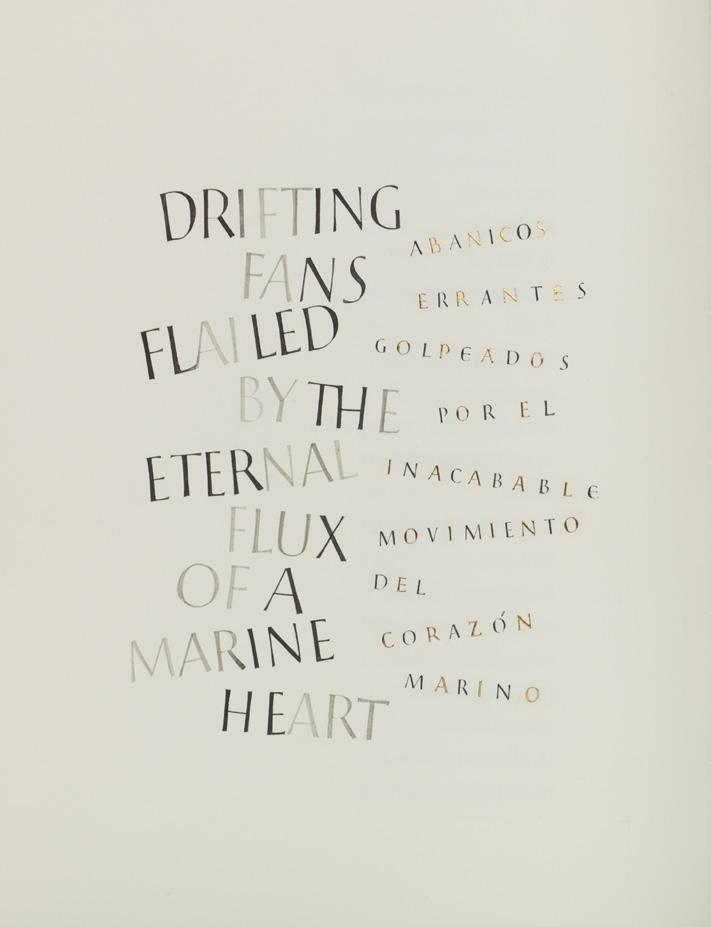 DRIFTING
FANS
FLAILED
BY THE
ETERNAL
FLUX
OF A
MARINE
HEART
ABANICOS
ERRANTES
GOLPEADOS
POR EL
INACABABLE
MOVIMIENTO
DEL
CORAZÓN
MARINO